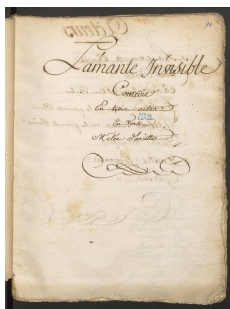 L'amante Invisible
Comedie
En trois actes
En Vers
Melée d'ariettes